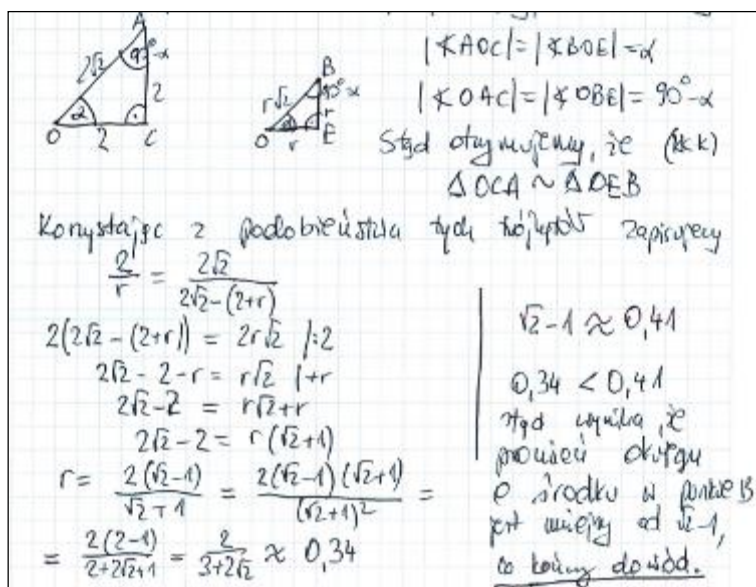 A
90°-α
2√2
2
α
O 2 C
B
90°-α
r√2
r
α
O r E
|∢AOC|=|∢BOE|=α
|∢OAC|=|∢OBE|= 90°-α
Stąd otrzymujemy, że (kkk)
Δ OCA ~ Δ OEB
Korzystając z podobieństwa tych trójkątów zapisujemy
2/r = 2√2/(2√2-(2+r))
2(2√2-(2+r)) = 2r√2 |:2
2√2-2-r = r√2 |+r
2√2-2 = r√2+r
2√2-2 = r(√2+1)
r = 2(√2-1)/(√2+1) = 2(√2-1)(√2+1)/(√2+1)² =
= 2(2-1)/(2+2√2+1) = 2/(3+2√2) ≈ 0,34
√2-1 ≈ 0,41
0,34 < 0,41
stąd wynika, że
promień okręgu
o środku w punkcie B
jest mniejszy od √2-1,
co kończy dowód.